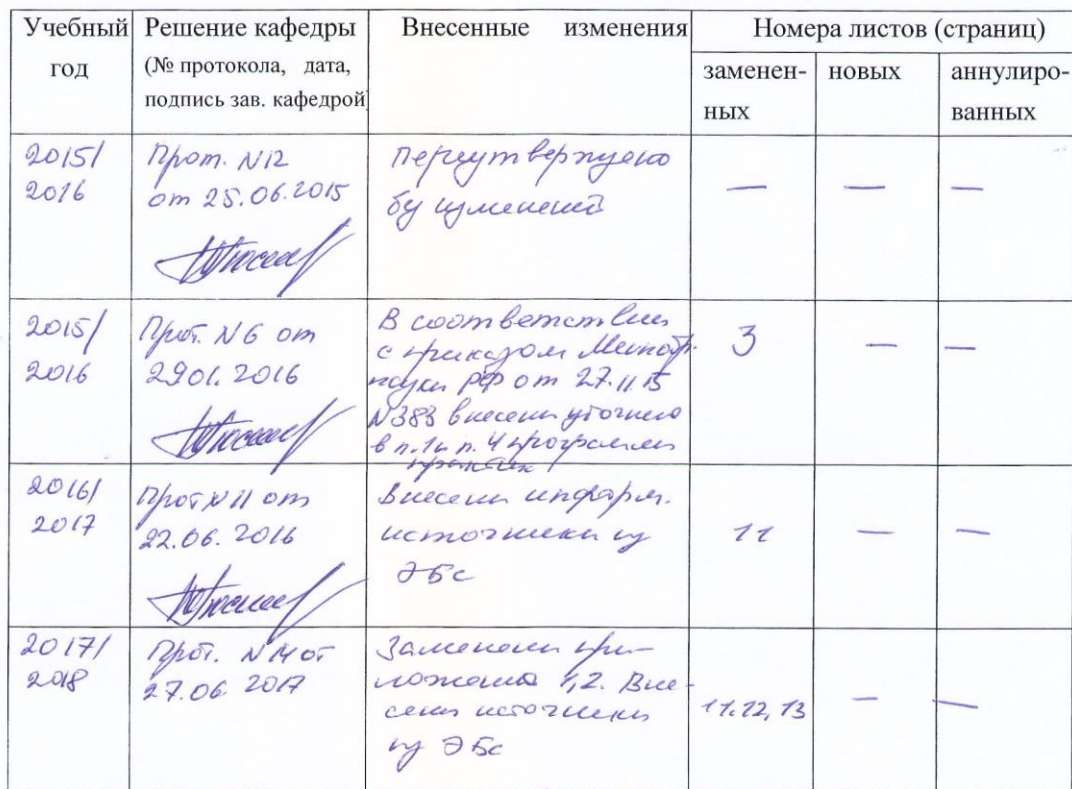 Учебный год
Решение кафедры
(№ протокола, дата,
подпись зав. кафедрой
Внесенные изменения
Номера листов (страниц)
заменен-
ных
новых
аннулиро-
ванных
2015/
2016
Прот. N12
от 25.06.2015
Переутверждено
без изменений
— — —
2015/
2016
Прот. N6 от
29.01.2016
В соответствии
с приказом Минобр.
науки РФ от 27.11.15
N383 внесены уточнен
в п.1 и п.4 программы
практик
3 — —
2016/
2017
Прот N 11 от
22.06.2016
Внесены информ.
источники из
ЭБС
11 — —
2017/
2018
Прот. N 14 от
27.06.2017
Заменены при-
ложения 1,2. Вне-
сены источники
из ЭБС
11.12,13 — —